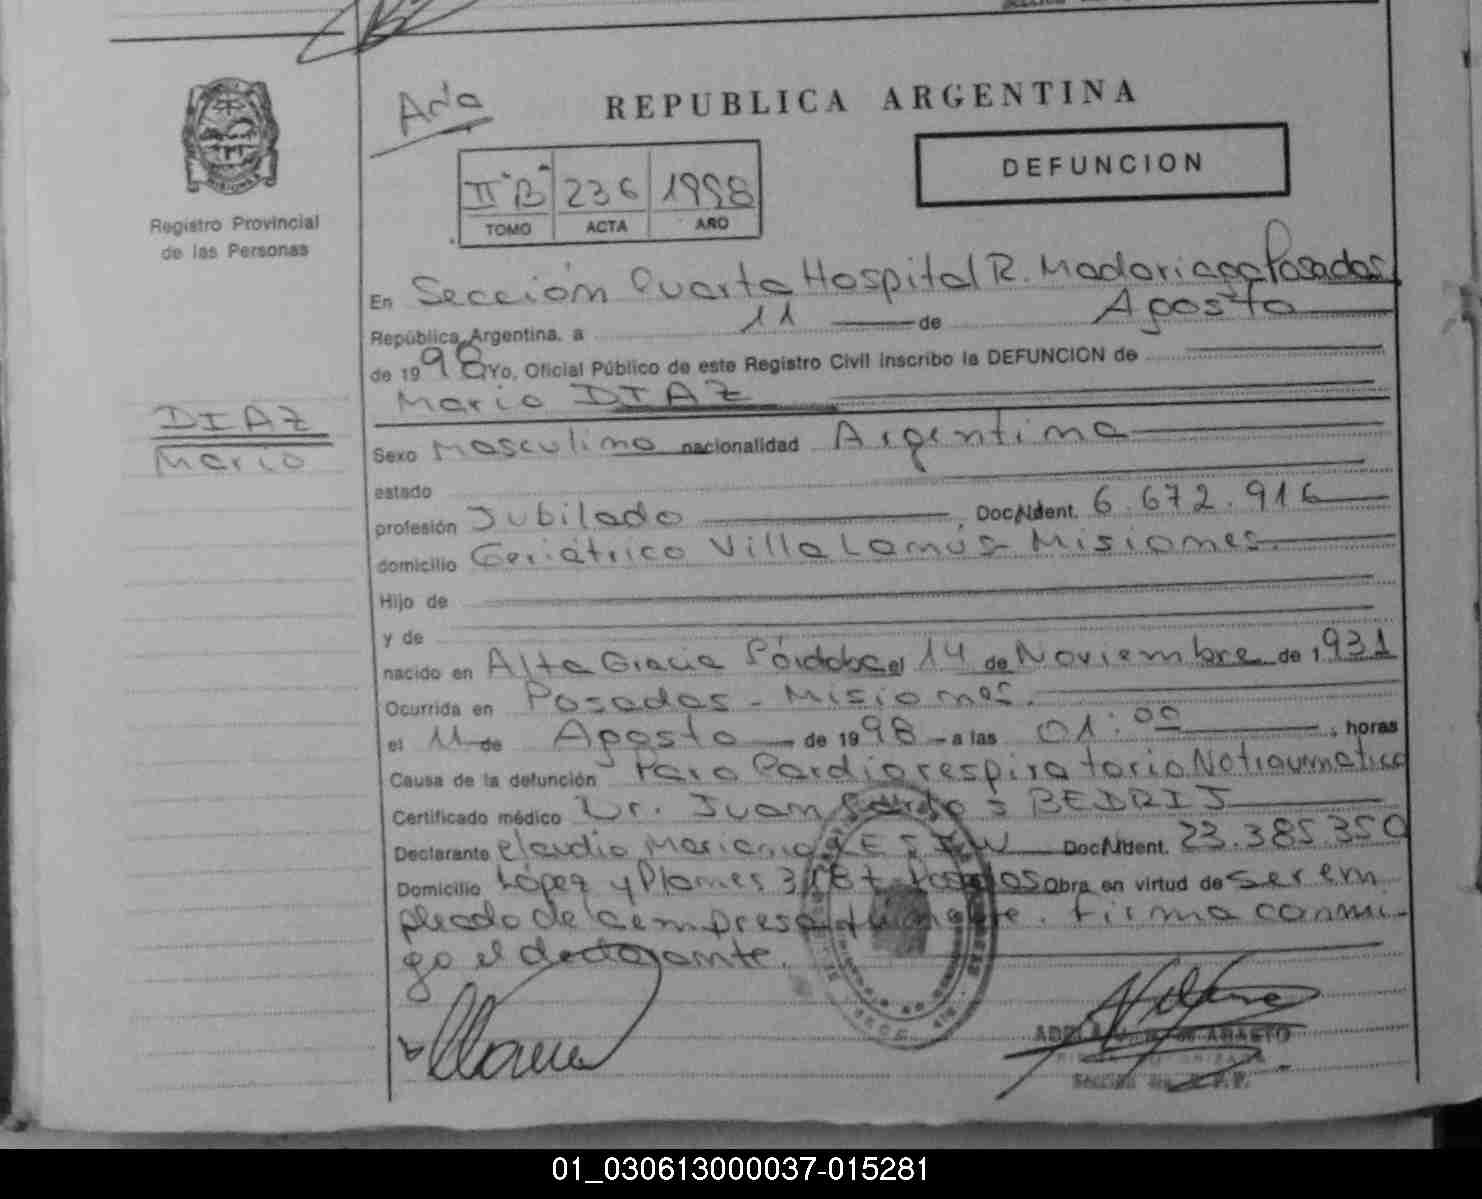 REPUBLICA ARGENTINA
DEFUNCION
II "B" 236 1998
TOMO ACTA AÑO
MISIONES
Registro Provincial
de las Personas
En Sección Cuarta Hospital R. Madariaga Posadas
República Argentina, a 11 de Agosto
de 1998 Yo, Oficial Público de este Registro Civil inscribo la DEFUNCION de
Mario DIAZ
DIAZ
Mario
Sexo Masculino nacionalidad Argentina
estado
profesión Jubilado, Doc. Ident. 6.672.916
domicilio Geriátrico Villa Lanús - Misiones.
Hijo de
y de
nacido en Alta Gracia Córdoba el 14 de Noviembre de 1931
Ocurrida en Posadas - Misiones.
el 11 de Agosto de 1998 - a las 01:00, horas
Causa de la defunción Paro Cardiorespiratorio No traumatico
Certificado médico Dr. Juan BEDRIJ
Declarante Claudio Mariano Doc. Ident. 23.385.350
Domicilio López y Planes Obra en virtud de ser em
pleado de la empresa funebre. Firma conmi-
go el declarante.
01_030613000037-015281